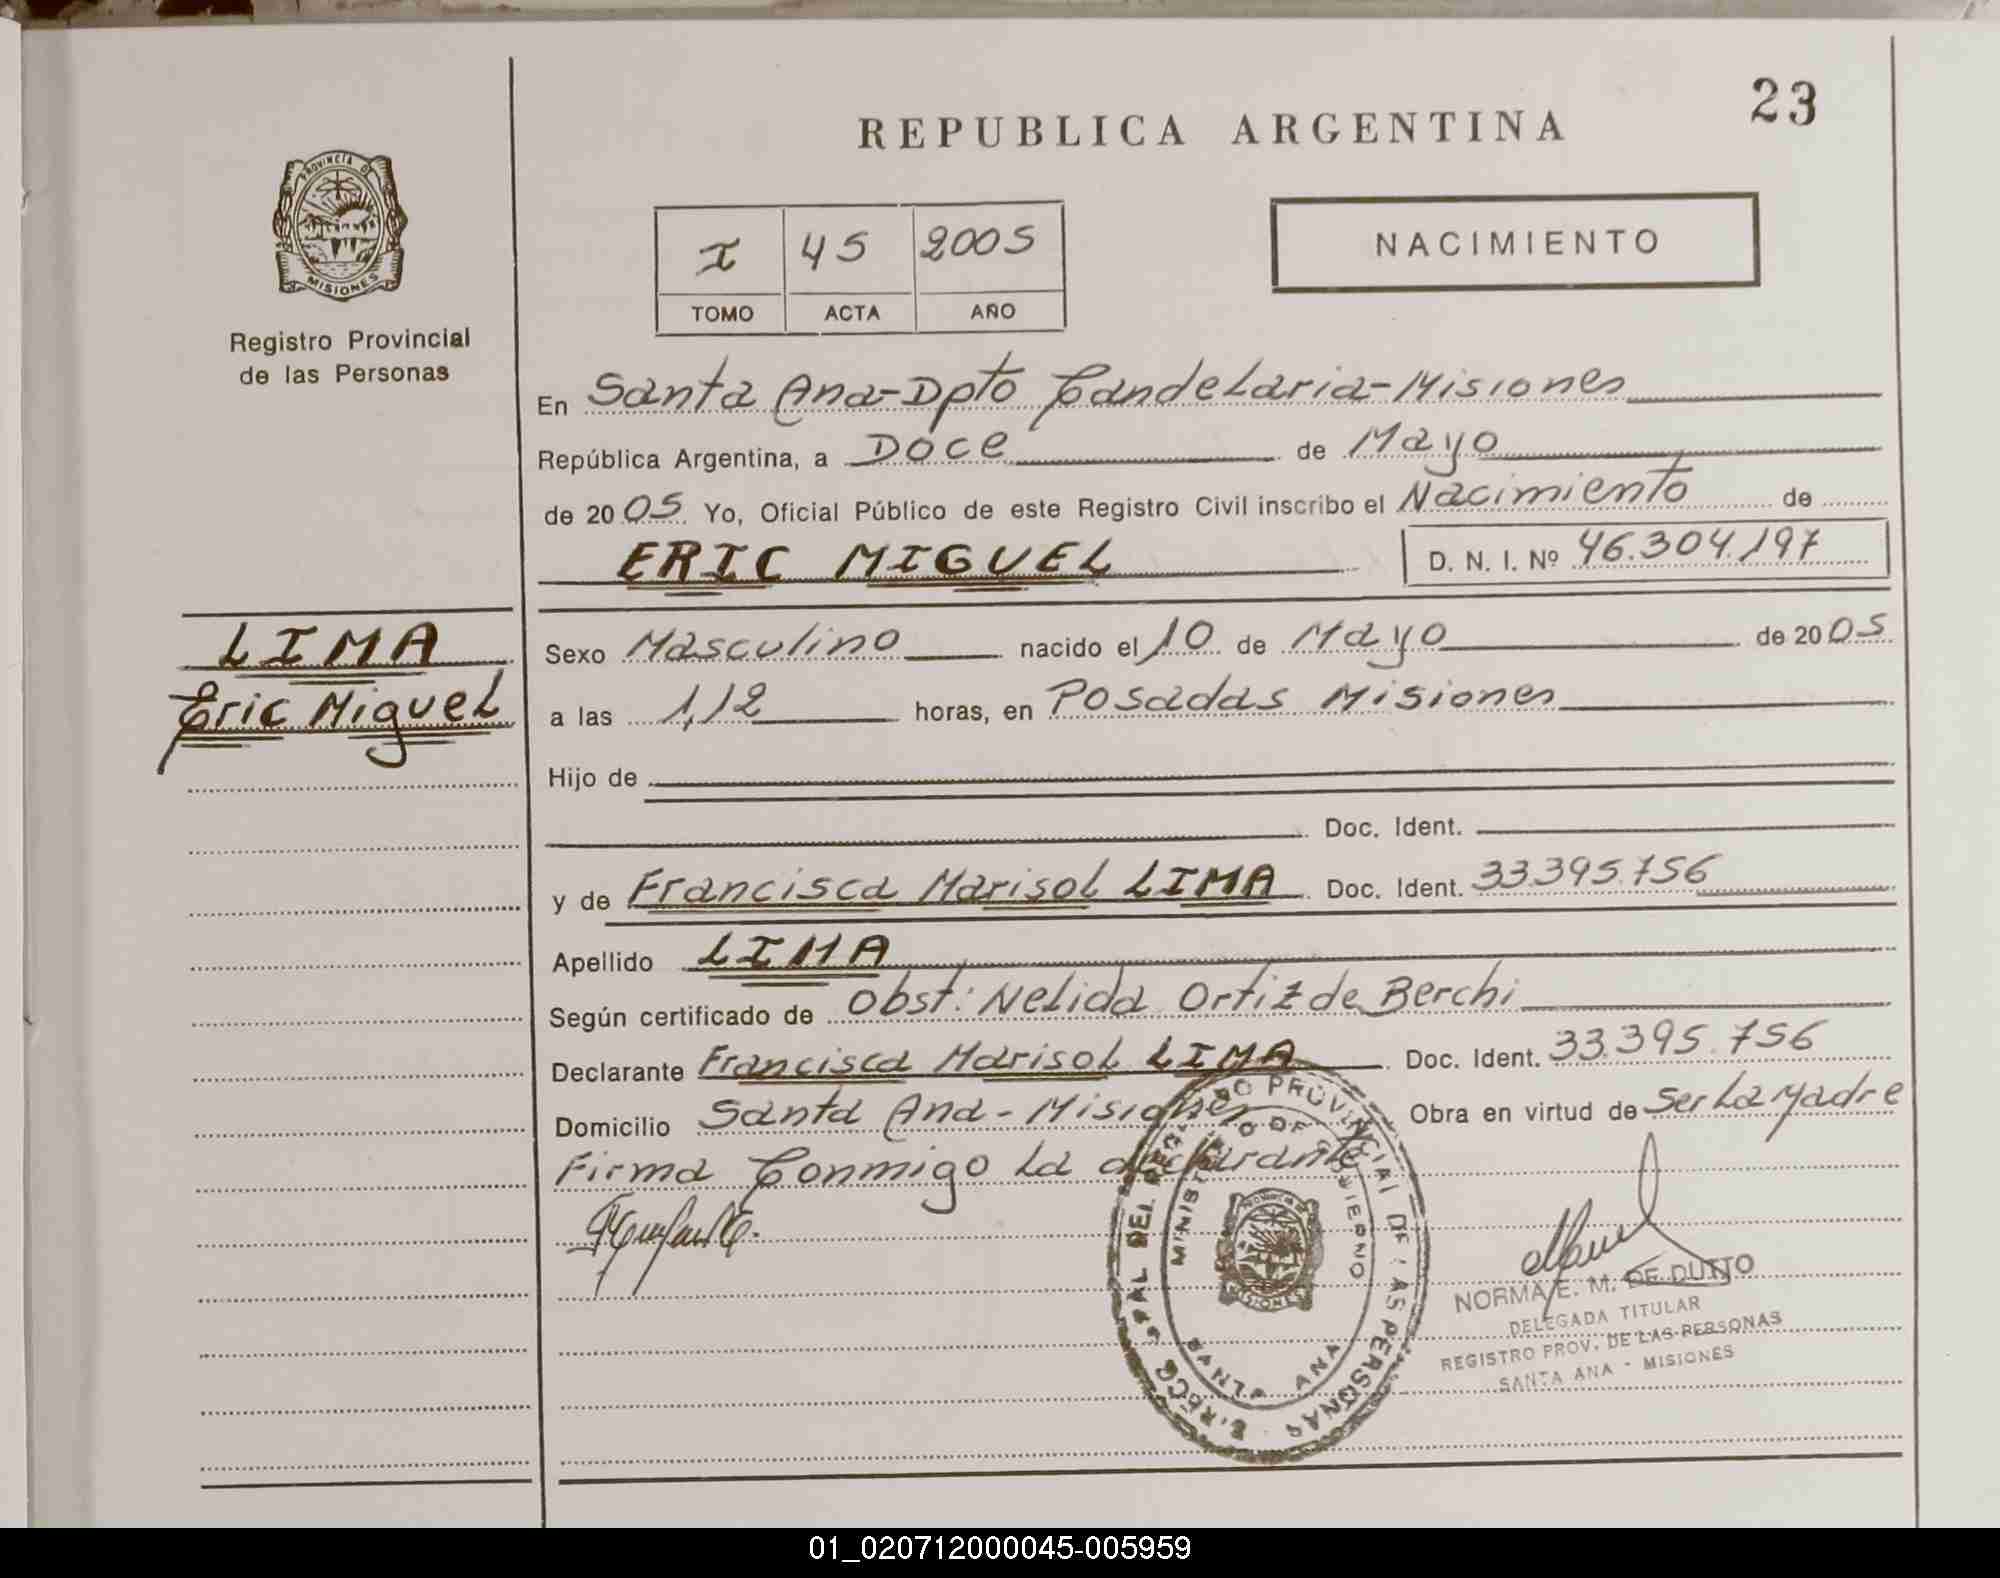 23
REPUBLICA ARGENTINA
PROVINCIA DE
MISIONES
Registro Provincial
de las Personas
I 45 2005
TOMO ACTA AÑO
NACIMIENTO
En Santa Ana-Dpto Candelaria-Misiones
República Argentina, a Doce de Mayo
de 2005 Yo, Oficial Público de este Registro Civil inscribo el Nacimiento de
ERIC MIGUEL D. N. I. Nº 46.304.197
LIMA
Eric Miguel
Sexo Masculino nacido el 10 de Mayo de 2005
a las 1,12 horas, en Posadas Misiones
Hijo de
Doc. Ident.
y de Francisca Marisol LIMA Doc. Ident. 33.395.756
Apellido LIMA
Según certificado de Obst: Nelida Ortiz de Berchi
Declarante Francisca Marisol LIMA Doc. Ident. 33.395.756
Domicilio Santa Ana - Misiones Obra en virtud de Ser La Madre
Firma Conmigo La declarante
PROVINCIAL DE LAS PERSONAS
MINISTERIO DE GOBIERNO
SANTA ANA
MISIONES
NORMA E. M. DE DUTTO
DELEGADA TITULAR
REGISTRO PROV. DE LAS PERSONAS
SANTA ANA - MISIONES
01_020712000045-005959